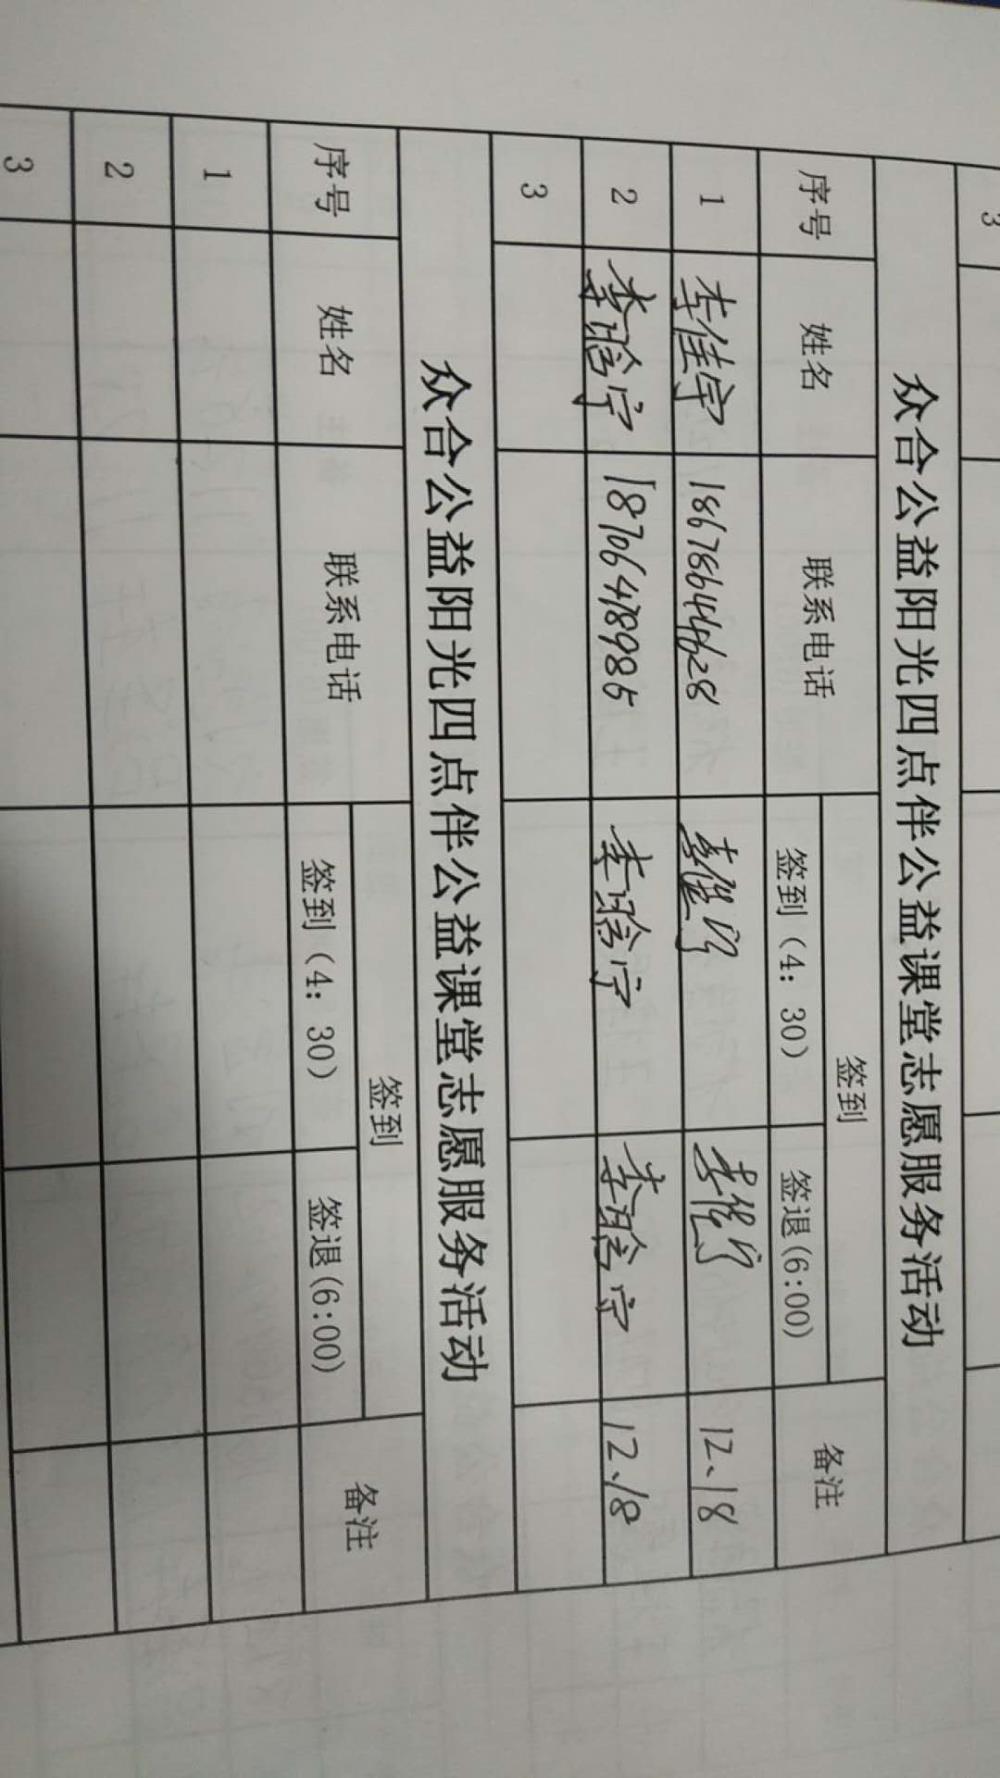 3
众合公益阳光四点伴公益课堂志愿服务活动
序号 姓名 联系电话 签到 备注
签到（4：30） 签退(6:00)
1 李佳宁 18678644628 李佳宁 李佳宁 12、18
2 李晗宁 18706478985 李晗宁 李晗宁 12、18
3
众合公益阳光四点伴公益课堂志愿服务活动
序号 姓名 联系电话 签到 备注
签到（4：30） 签退(6:00)
1
2
3